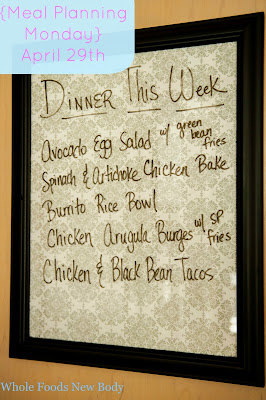 {Meal Planning
Monday}
April 29th
Dinner This Week
Avocado Egg Salad w/ green bean fries
Spinach & Artichoke Chicken Bake
Burrito Rice Bowl
Chicken Arugula Burges w/ SP fries
Chicken & Black Bean Tacos
Whole Foods New Body